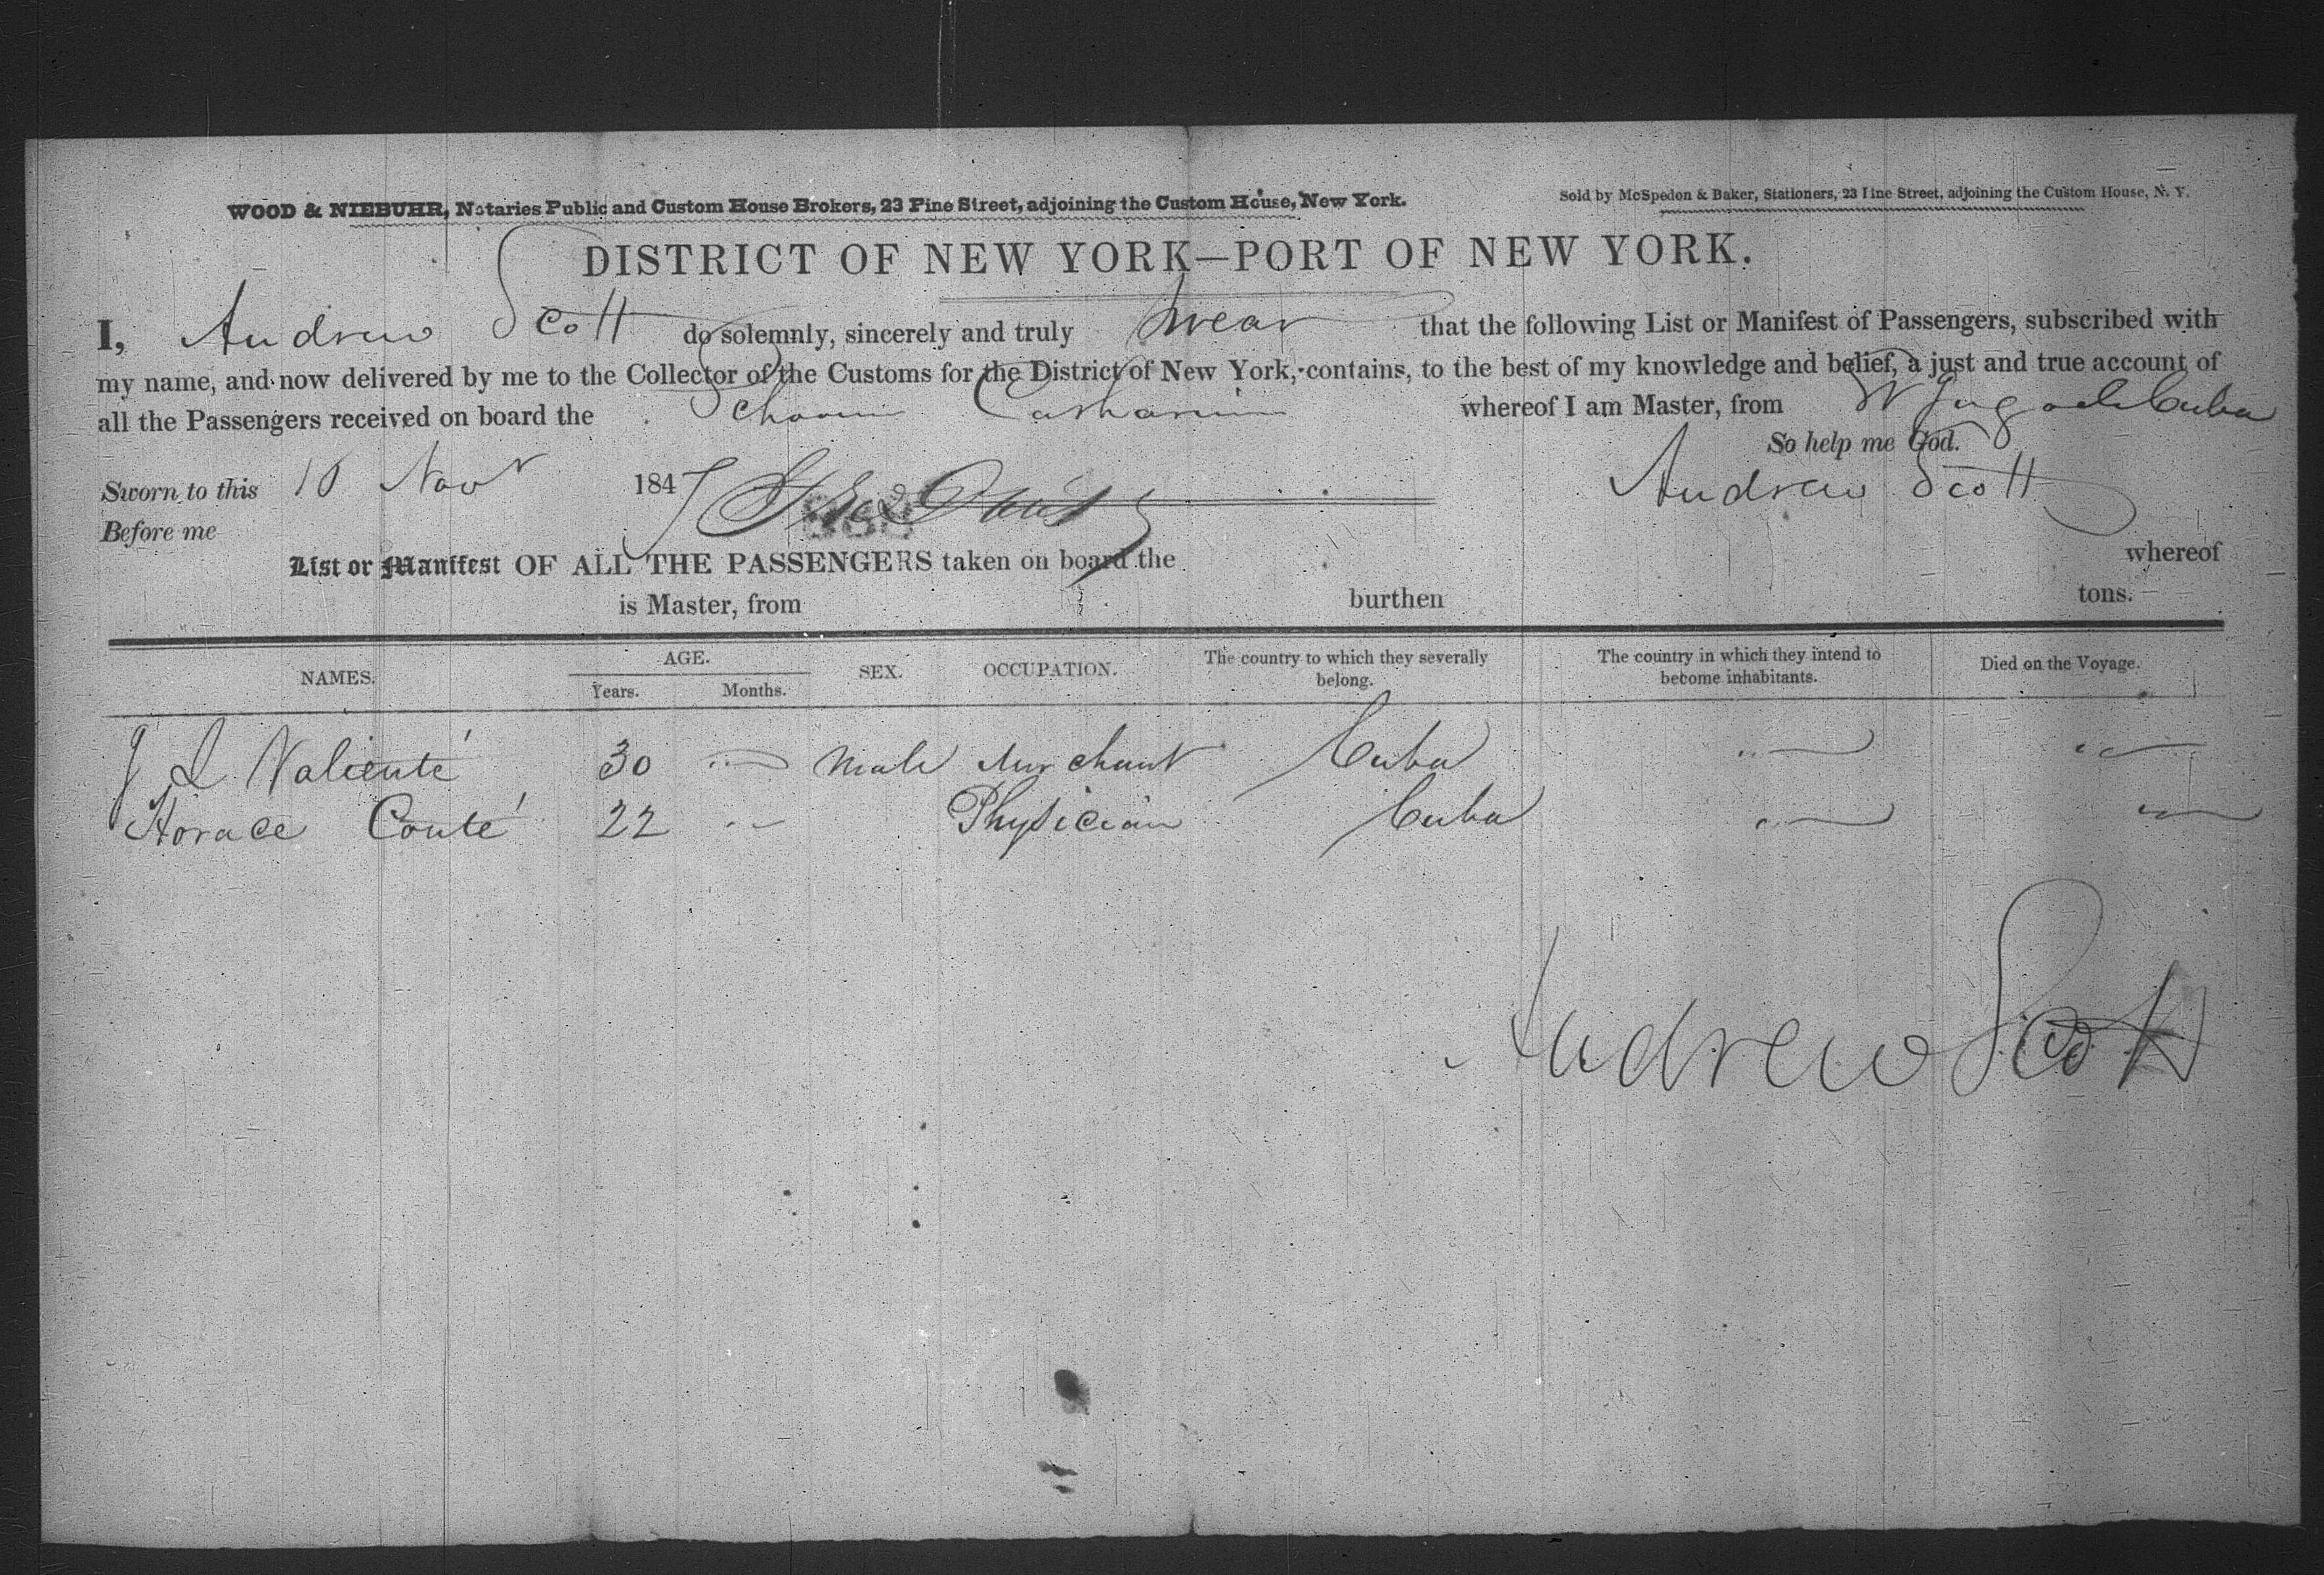 WOOD & NIEBUHR, Notaries Public and Custom House Brokers, 23 Pine Street, adjoining the Custom House, New York.
Sold by McSpedon & Baker, Stationers, 23 Pine Street, adjoining the Custom House, N. Y.
DISTRICT OF NEW YORK—PORT OF NEW YORK.
I, Andrew Scott do solemnly, sincerely and truly swear that the following List or Manifest of Passengers, subscribed with
my name, and now delivered by me to the Collector of the Customs for the District of New York, contains, to the best of my knowledge and belief, a just and true account of
all the Passengers received on board the whereof I am Master, from Cuba
So help me God.
Sworn to this Nov 1847 Andrew Scott
Before me
List or Manifest OF ALL THE PASSENGERS taken on board the whereof
is Master, from burthen tons.
NAMES. AGE. SEX. OCCUPATION. The country to which they severally belong. The country in which they intend to become inhabitants. Died on the Voyage.
Years. Months.
Valienté 30 Male Merchant Cuba
Horace Conté 22 Physician Cuba
Andrew Scott